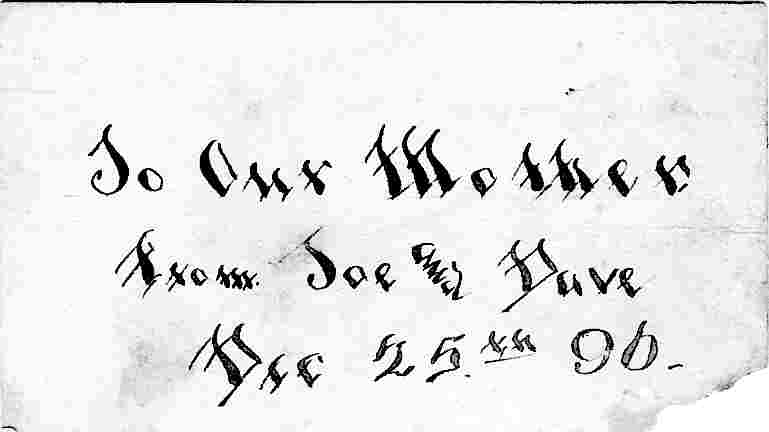 To Our Mother
from Joe and Dave
Dec 25.th 96.